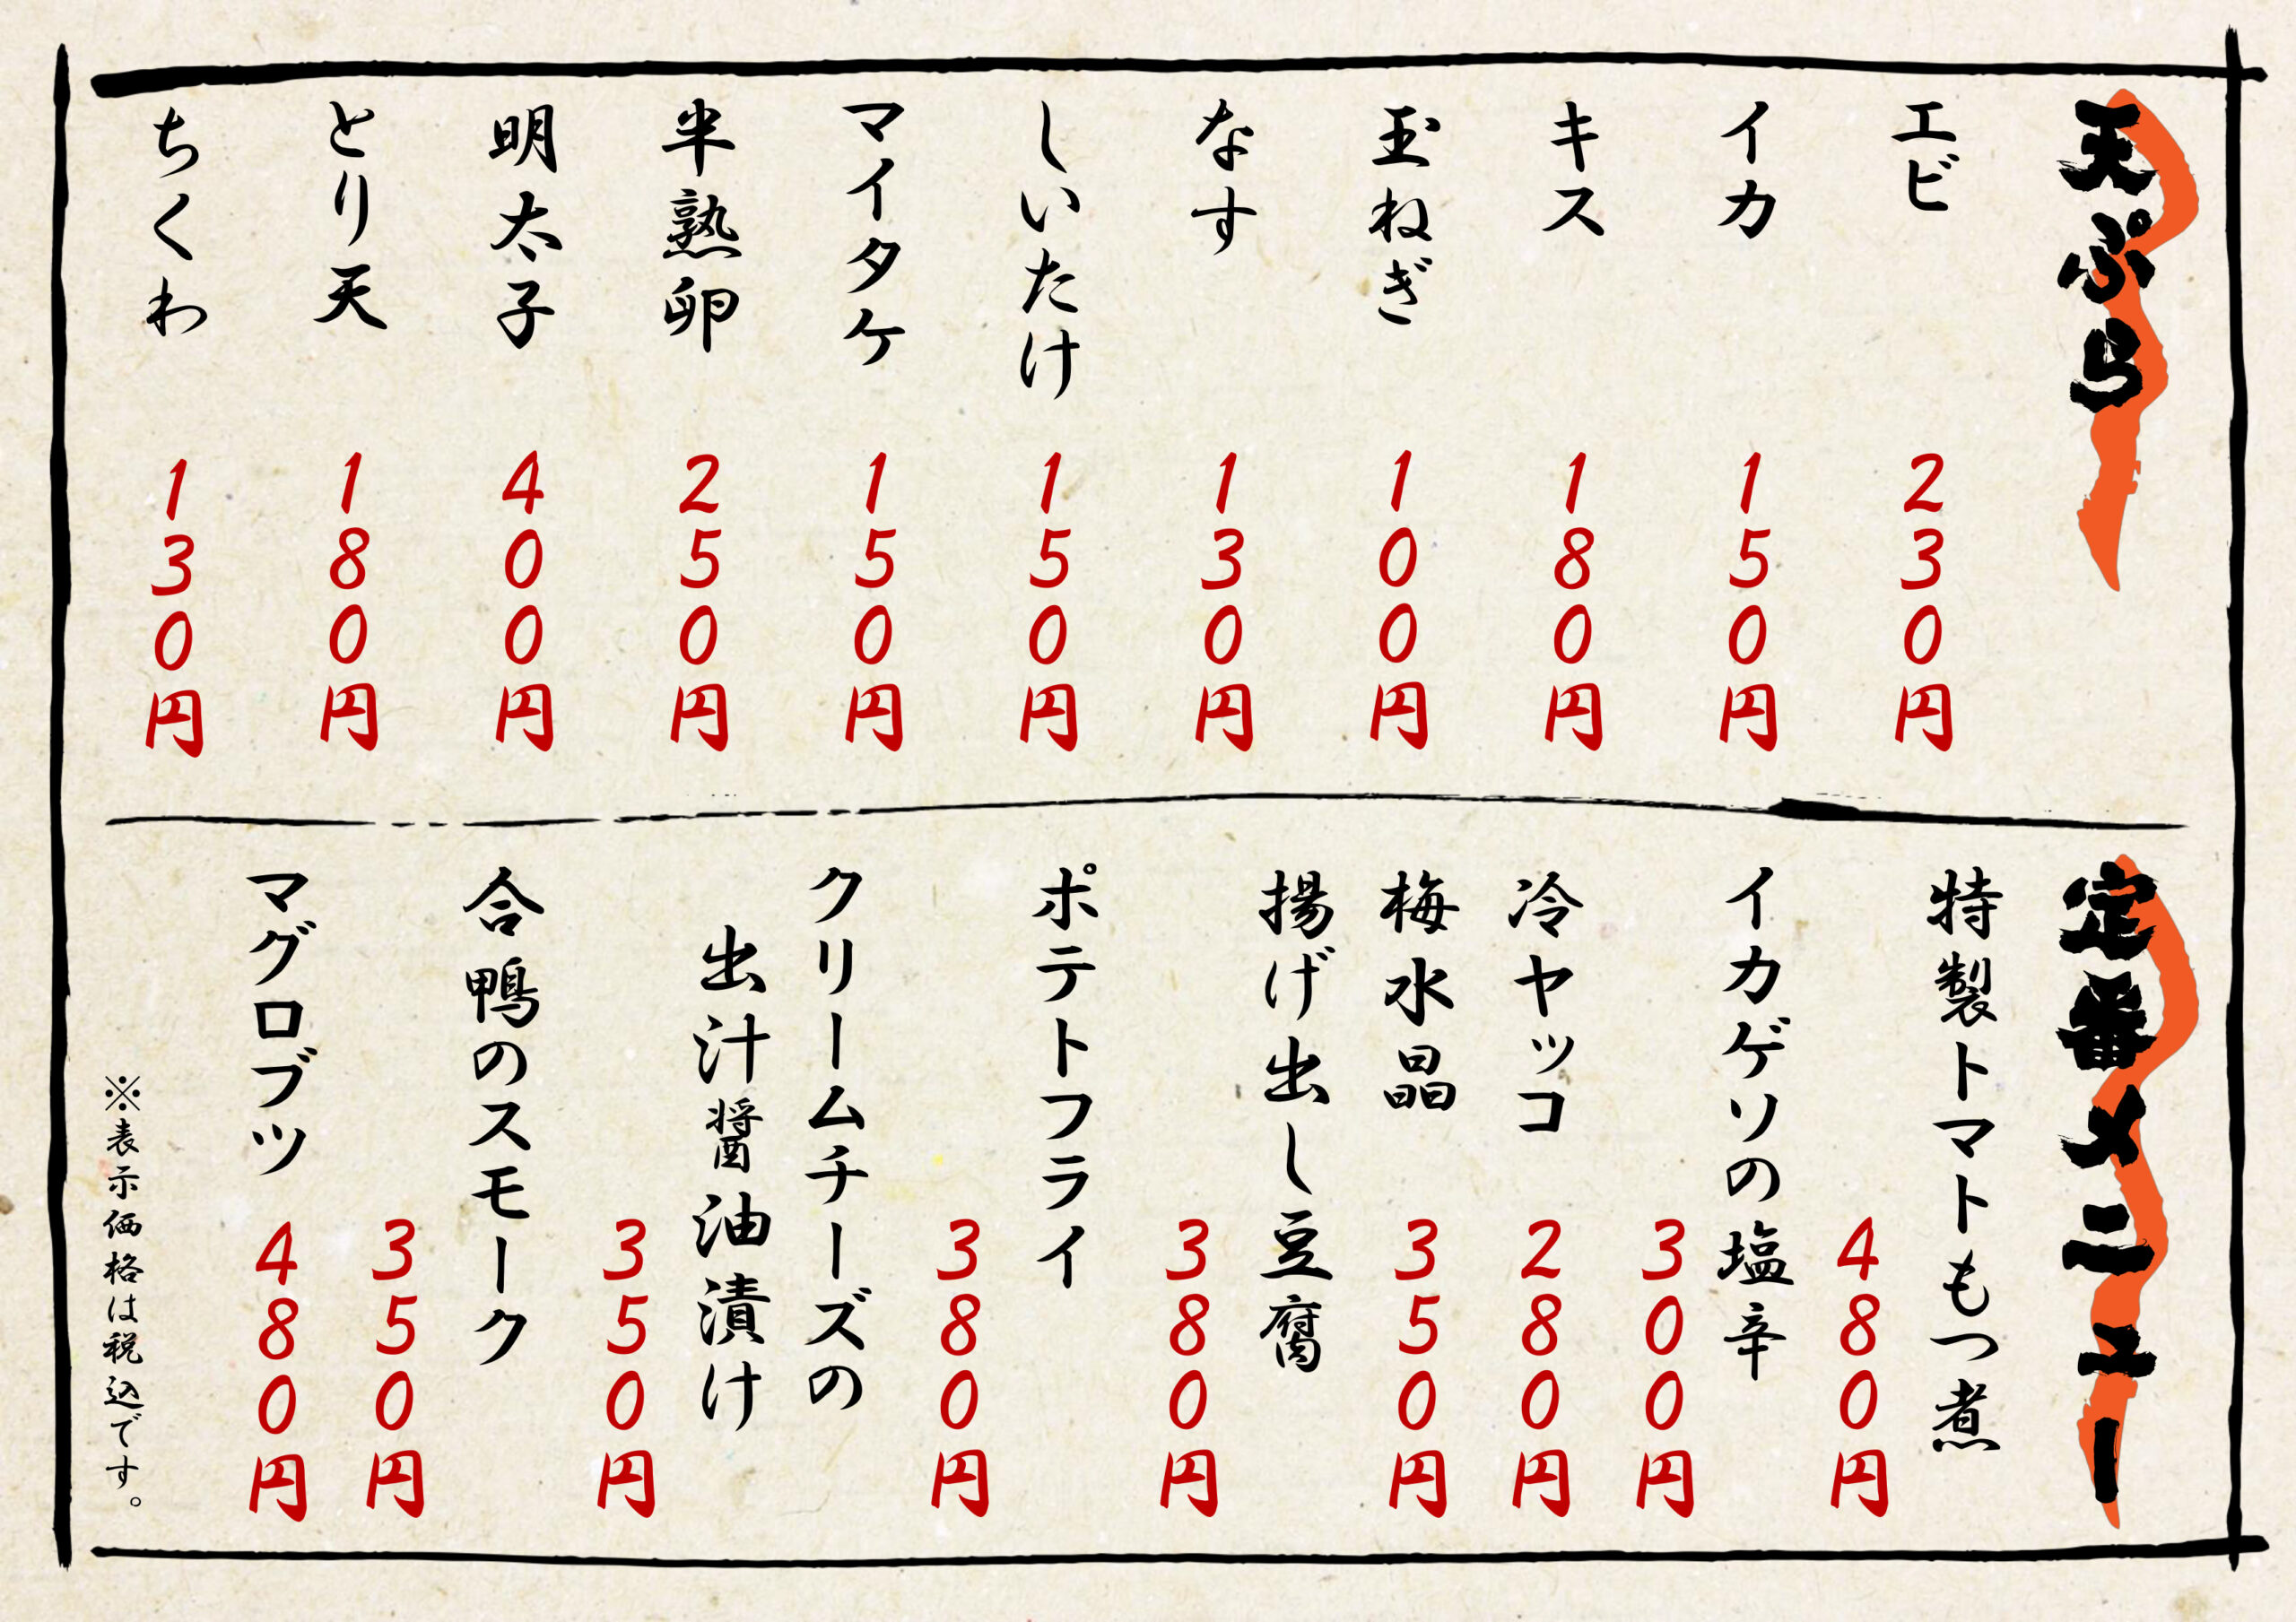 天ぷら
エビ
230円
イカ
150円
キス
180円
玉ねぎ
100円
なす
130円
しいたけ
150円
マイタケ
150円
半熟卵
250円
明太子
400円
とり天
180円
ちくわ
130円
定番メニュー
特製トマトもつ煮
480円
イカゲソの塩辛
300円
冷ヤッコ
280円
梅水晶
350円
揚げ出し豆腐
380円
ポテトフライ
380円
クリームチーズの
出汁醤油漬け
350円
合鴨のスモーク
350円
マグロブツ
480円
※表示価格は税込です。